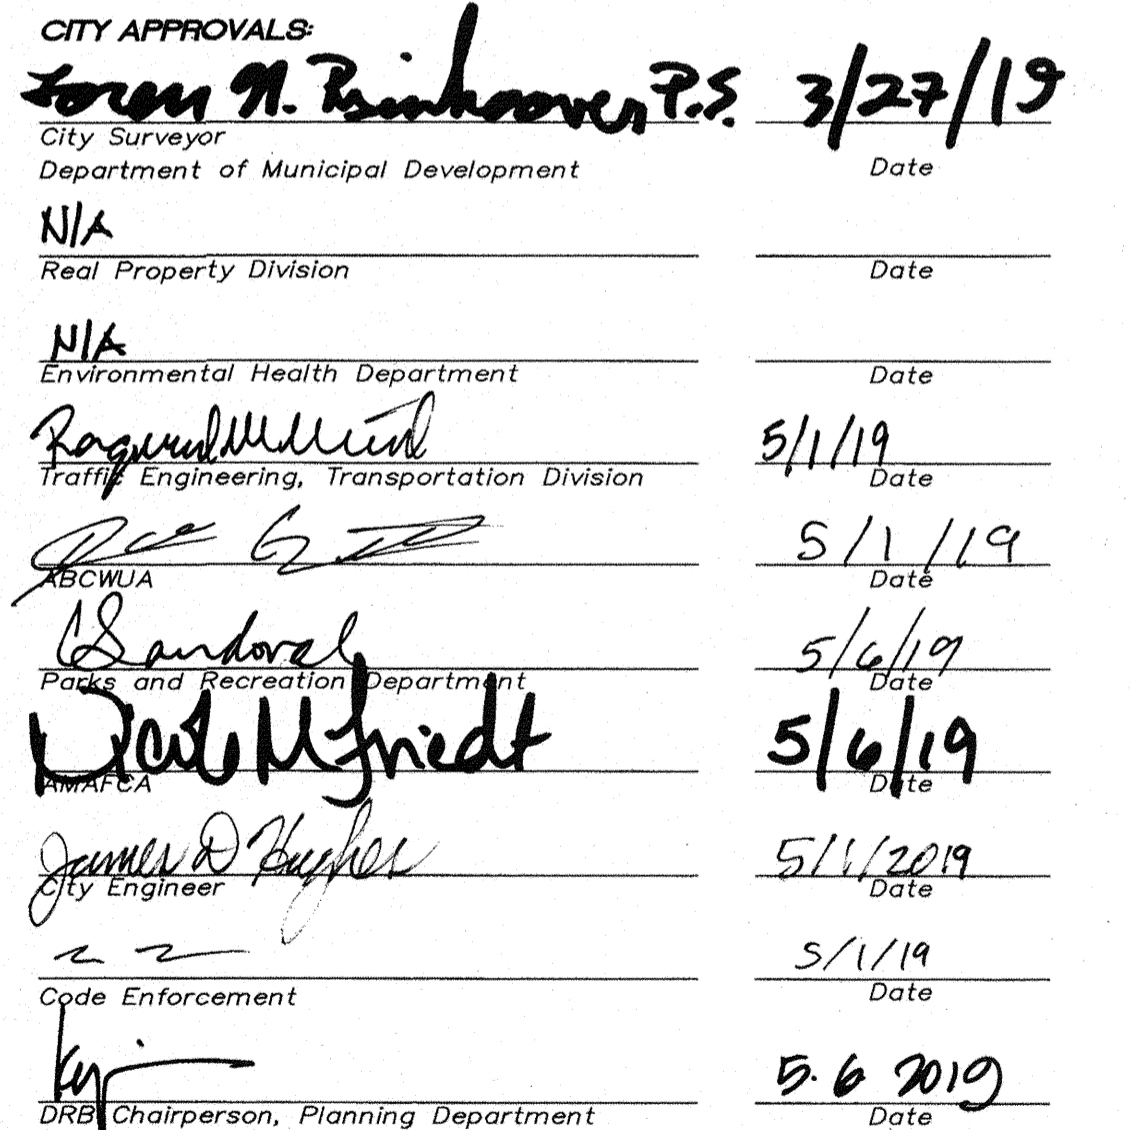 CITY APPROVALS:
Loren N. Risenhoover P.S. 3/27/19
City Surveyor
Department of Municipal Development Date
N/A
Real Property Division Date
N/A
Environmental Health Department Date
5/1/19
Traffic Engineering, Transportation Division Date
5/1/19
ABCWUA Date
C Sandoval 5/6/19
Parks and Recreation Department Date
M Friedt 5/6/19
AMAFCA Date
James D Hughes 5/1/2019
City Engineer Date
5/1/19
Code Enforcement Date
5.6 2019
DRB Chairperson, Planning Department Date